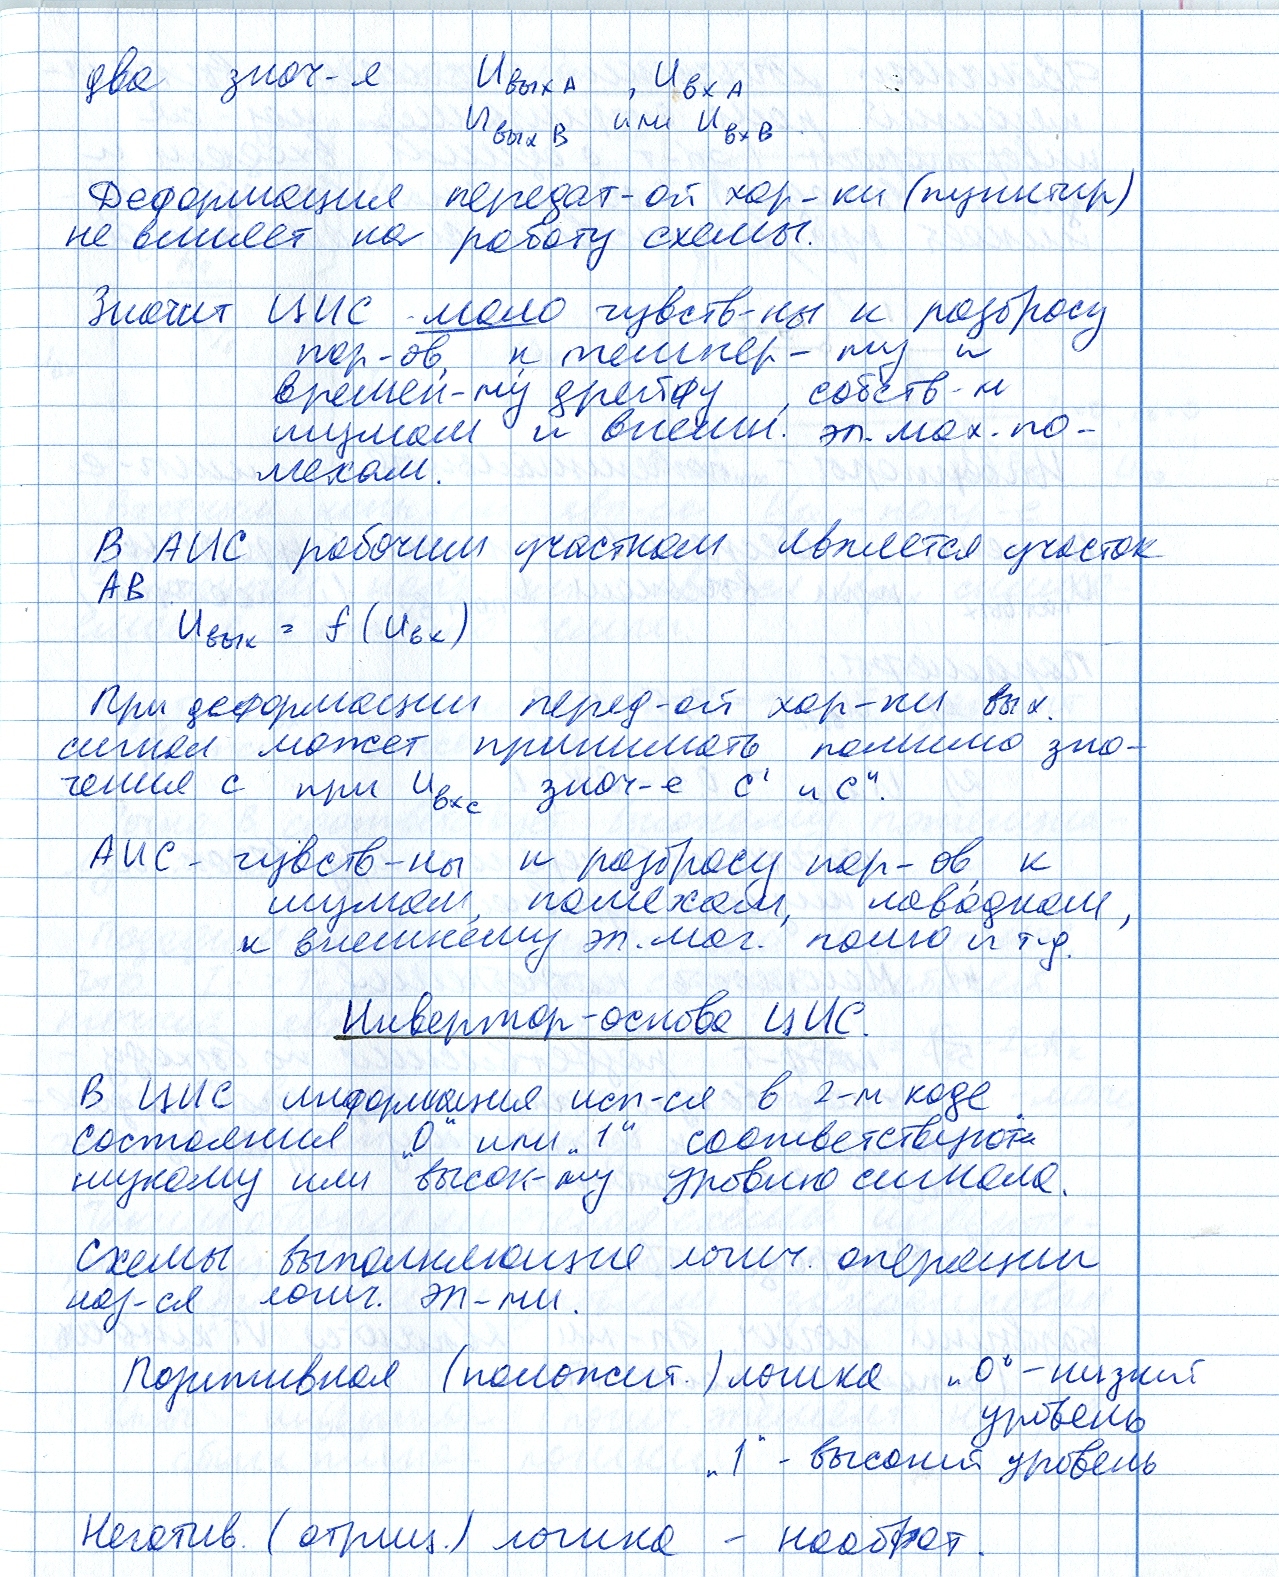 два знач-я Uвых A , Uвх A
Uвых B или Uвх B
Деформация передат-ой хар-ки (пунктир)
не влияет на работу схемы.
Значит ЦИС мало чувств-ны к разбросу
пар-ов, к темпер-му и
времен-му дрейфу, собств-м
шумам и внешн. эл. маг. по-
мехам.
В АИС рабочим участком является участок
АВ
Uвых = f (Uвх)
При деформации перед-ой хар-ки вых.
сигнал может принимать помимо зна-
чения С при Uвхс знач-е С' и С".
АИС - чувств-ны к разбросу пар-ов, к
шумам, помехам, наводкам,
к внешнему эл. маг. полю и т-д.
Инвертор-основа ЦИС.
В ЦИС информация исп-ся в 2-м коде.
Состояния „0" или „1" соответствуют
низкому или высок-му уровню сигнала.
Схемы выполняющие логич. операции
наз-ся логич. эл-ми.
Позитивная (положит.) логика „0" - низкий
уровень
„1" - высокий уровень
Негатив. (отриц.) логика - наоброт.